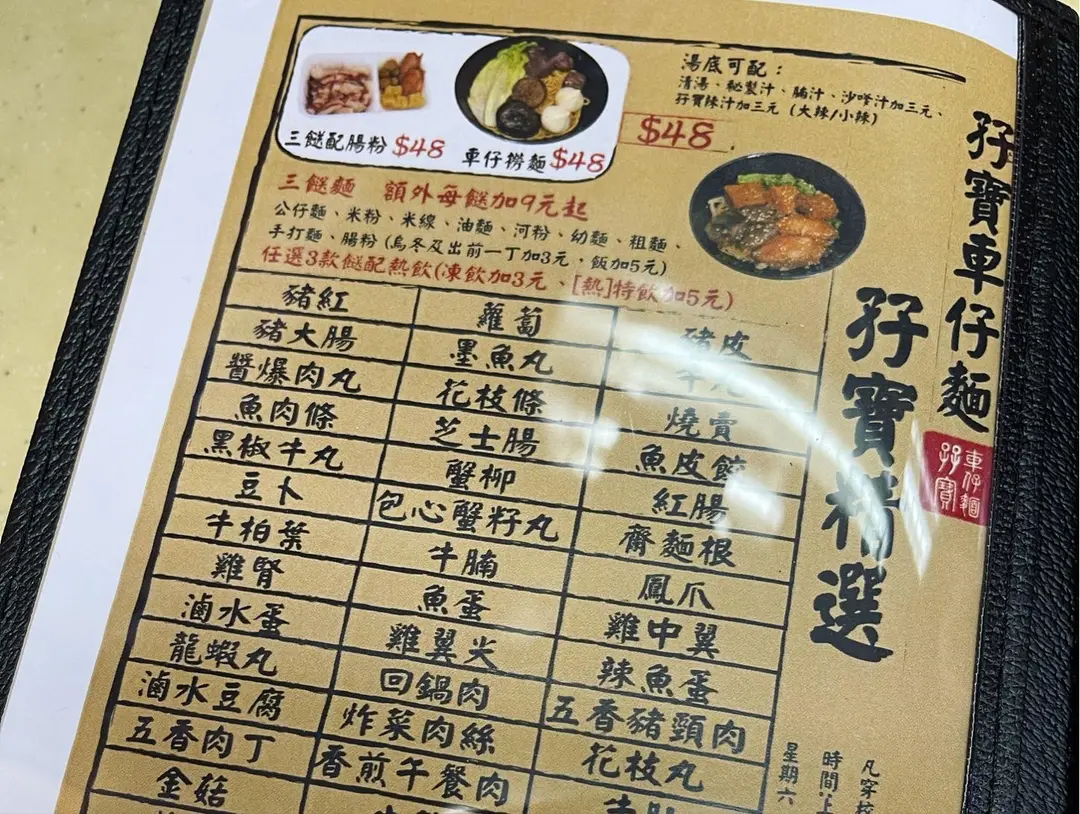 三餸配腸粉 $48
車仔撈麵 $48
湯底可配：
清湯、秘製汁、腩汁、沙嗲汁加三元、
孖寶辣汁加三元（大辣/小辣）
$48
三餸麵 額外每餸加9元起
公仔麵、米粉、米線、油麵、河粉、幼麵、粗麵、
手打麵、腸粉(烏冬及出前一丁加3元，飯加5元)
任選3款餸配熱飲(凍飲加3元、[熱]特飲加5元)
豬紅 蘿蔔 豬皮
豬大腸 墨魚丸 牛丸
醬爆肉丸 花枝條 燒賣
魚肉條 芝士腸 魚皮餃
黑椒牛丸 蟹柳 紅腸
豆卜 包心蟹籽丸 齋麵根
牛柏葉 牛腩 鳳爪
雞腎 魚蛋 雞中翼
滷水蛋 雞翼尖 辣魚蛋
龍蝦丸 回鍋肉 五香豬頸肉
滷水豆腐 炸菜肉絲 花枝丸
五香肉丁 香煎午餐肉
金菇
孖寶車仔麵
孖寶精選
車仔麵
孖寶
凡穿校
時間:上
星期六